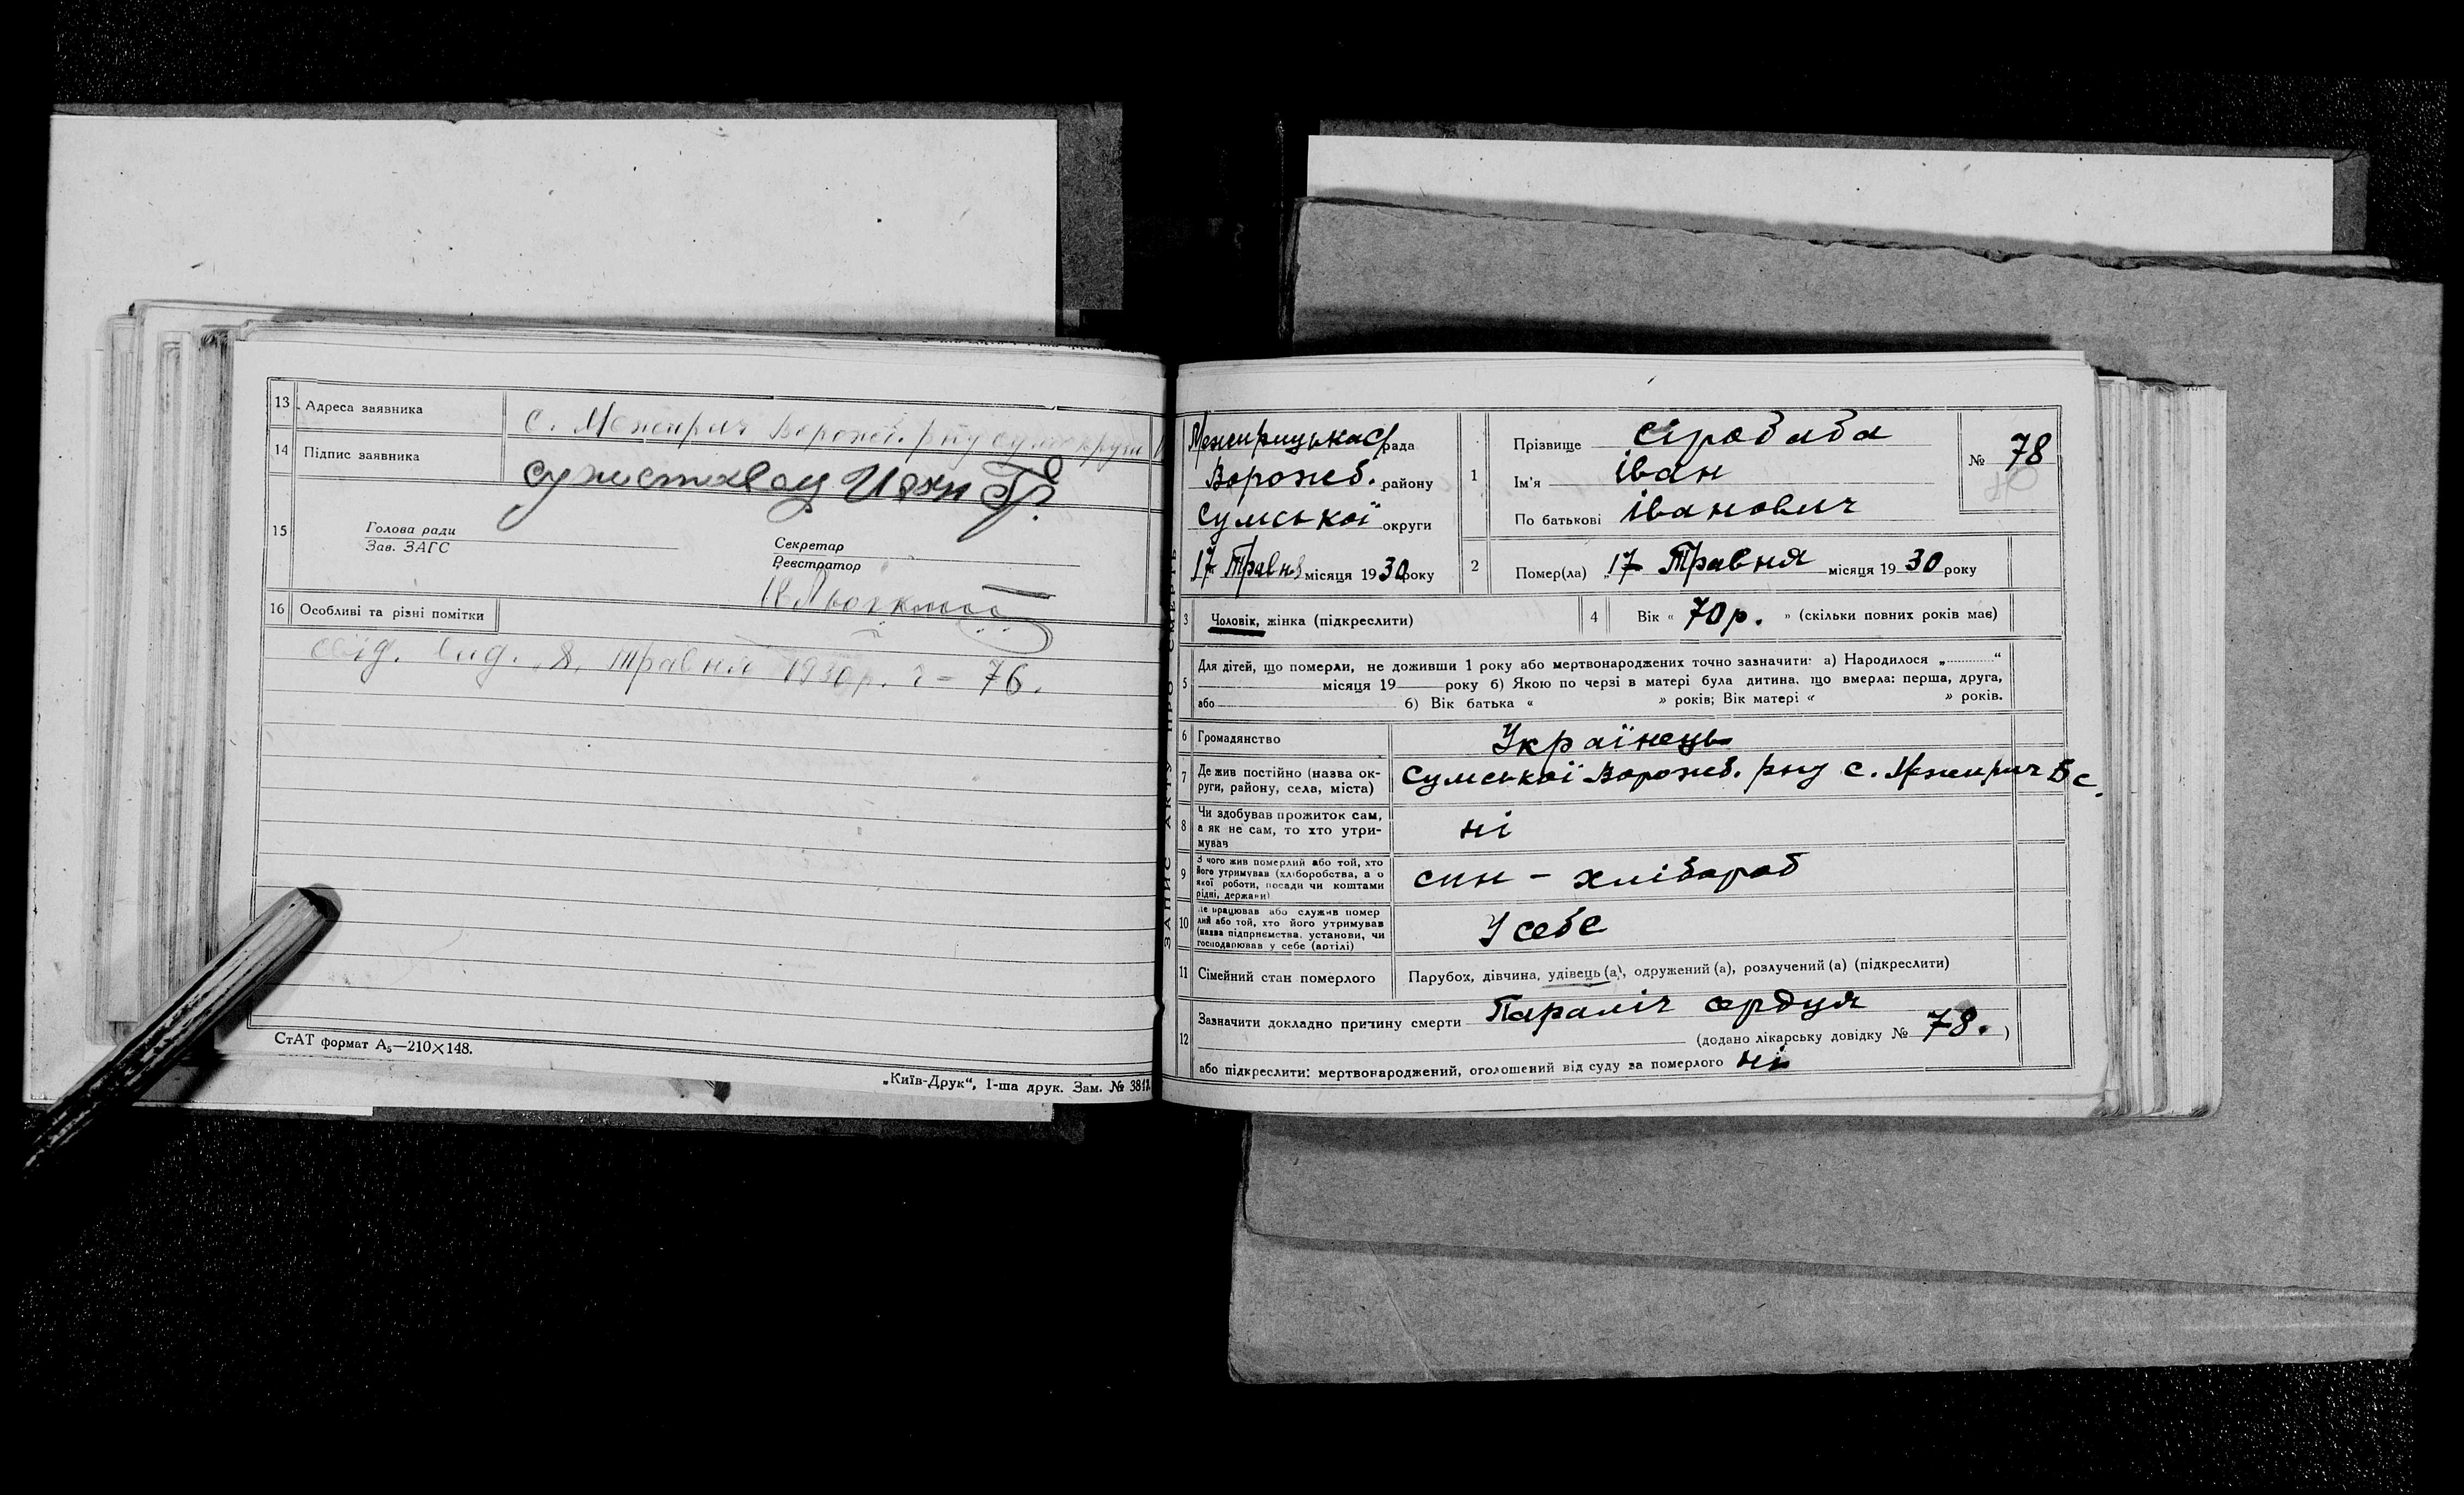 13 Адреса заявника с. Межирич Ворожб. р-ну Сум округи
14 Підпис заявника
15 Голова ради
Зав. ЗАГС
Секретар
Реєстратор
16 Особливі та різні помітки
свід. вид. 8, травня 1930 р. 76.
СтАТ формат А₅—210×148.
„Київ-Друк“, 1-ша друк. Зам. № 3817.
ЗАПИС АКТУ ПРО СМЕРТЬ
Межирицька с/рада
Ворожб. району
Сумської округи
17 Травня місяця 1930 року
1 Прізвище Сіробаба
Ім'я Іван
По батькові Іванович
№ 78
2 Помер(ла) „17 Травня місяця 1930 року
3 Чоловік, жінка (підкреслити)
4 Вік « 70 р. » (скільки повних років має)
5 Для дітей, що померли, не доживши 1 року або мертвонароджених точно зазначити: а) Народилося „ “
місяця 19 року б) Якою по черзі в матері була дитина, що вмерла: перша, друга,
або б) Вік батька « » років; Вік матері « » років.
6 Громадянство Українець
7 Де жив постійно (назва ок-
руги, району, села, міста) Сумської Ворожб. р-ну с. Межирич Б с.
8 Чи здобував прожиток сам,
а як не сам, то хто утри-
мував ні
9 З чого жив померлий або той, хто
його утримував (хліборобства, а о
якої роботи, посади чи коштами
рідні, держави) син - хлібороб
10 Де працював або служив помер
лий або той, хто його утримував
(назва підприємства, установи, чи
господарював у себе (артілі) У себе
11 Сімейний стан померлого Парубок, дівчина, удівець (а), одружений (а), розлучений (а) (підкреслити)
12 Зазначити докладно причину смерти Параліч сердця
(додано лікарську довідку № 78. )
або підкреслити: мертвонароджений, оголошений від суду за померлого ні